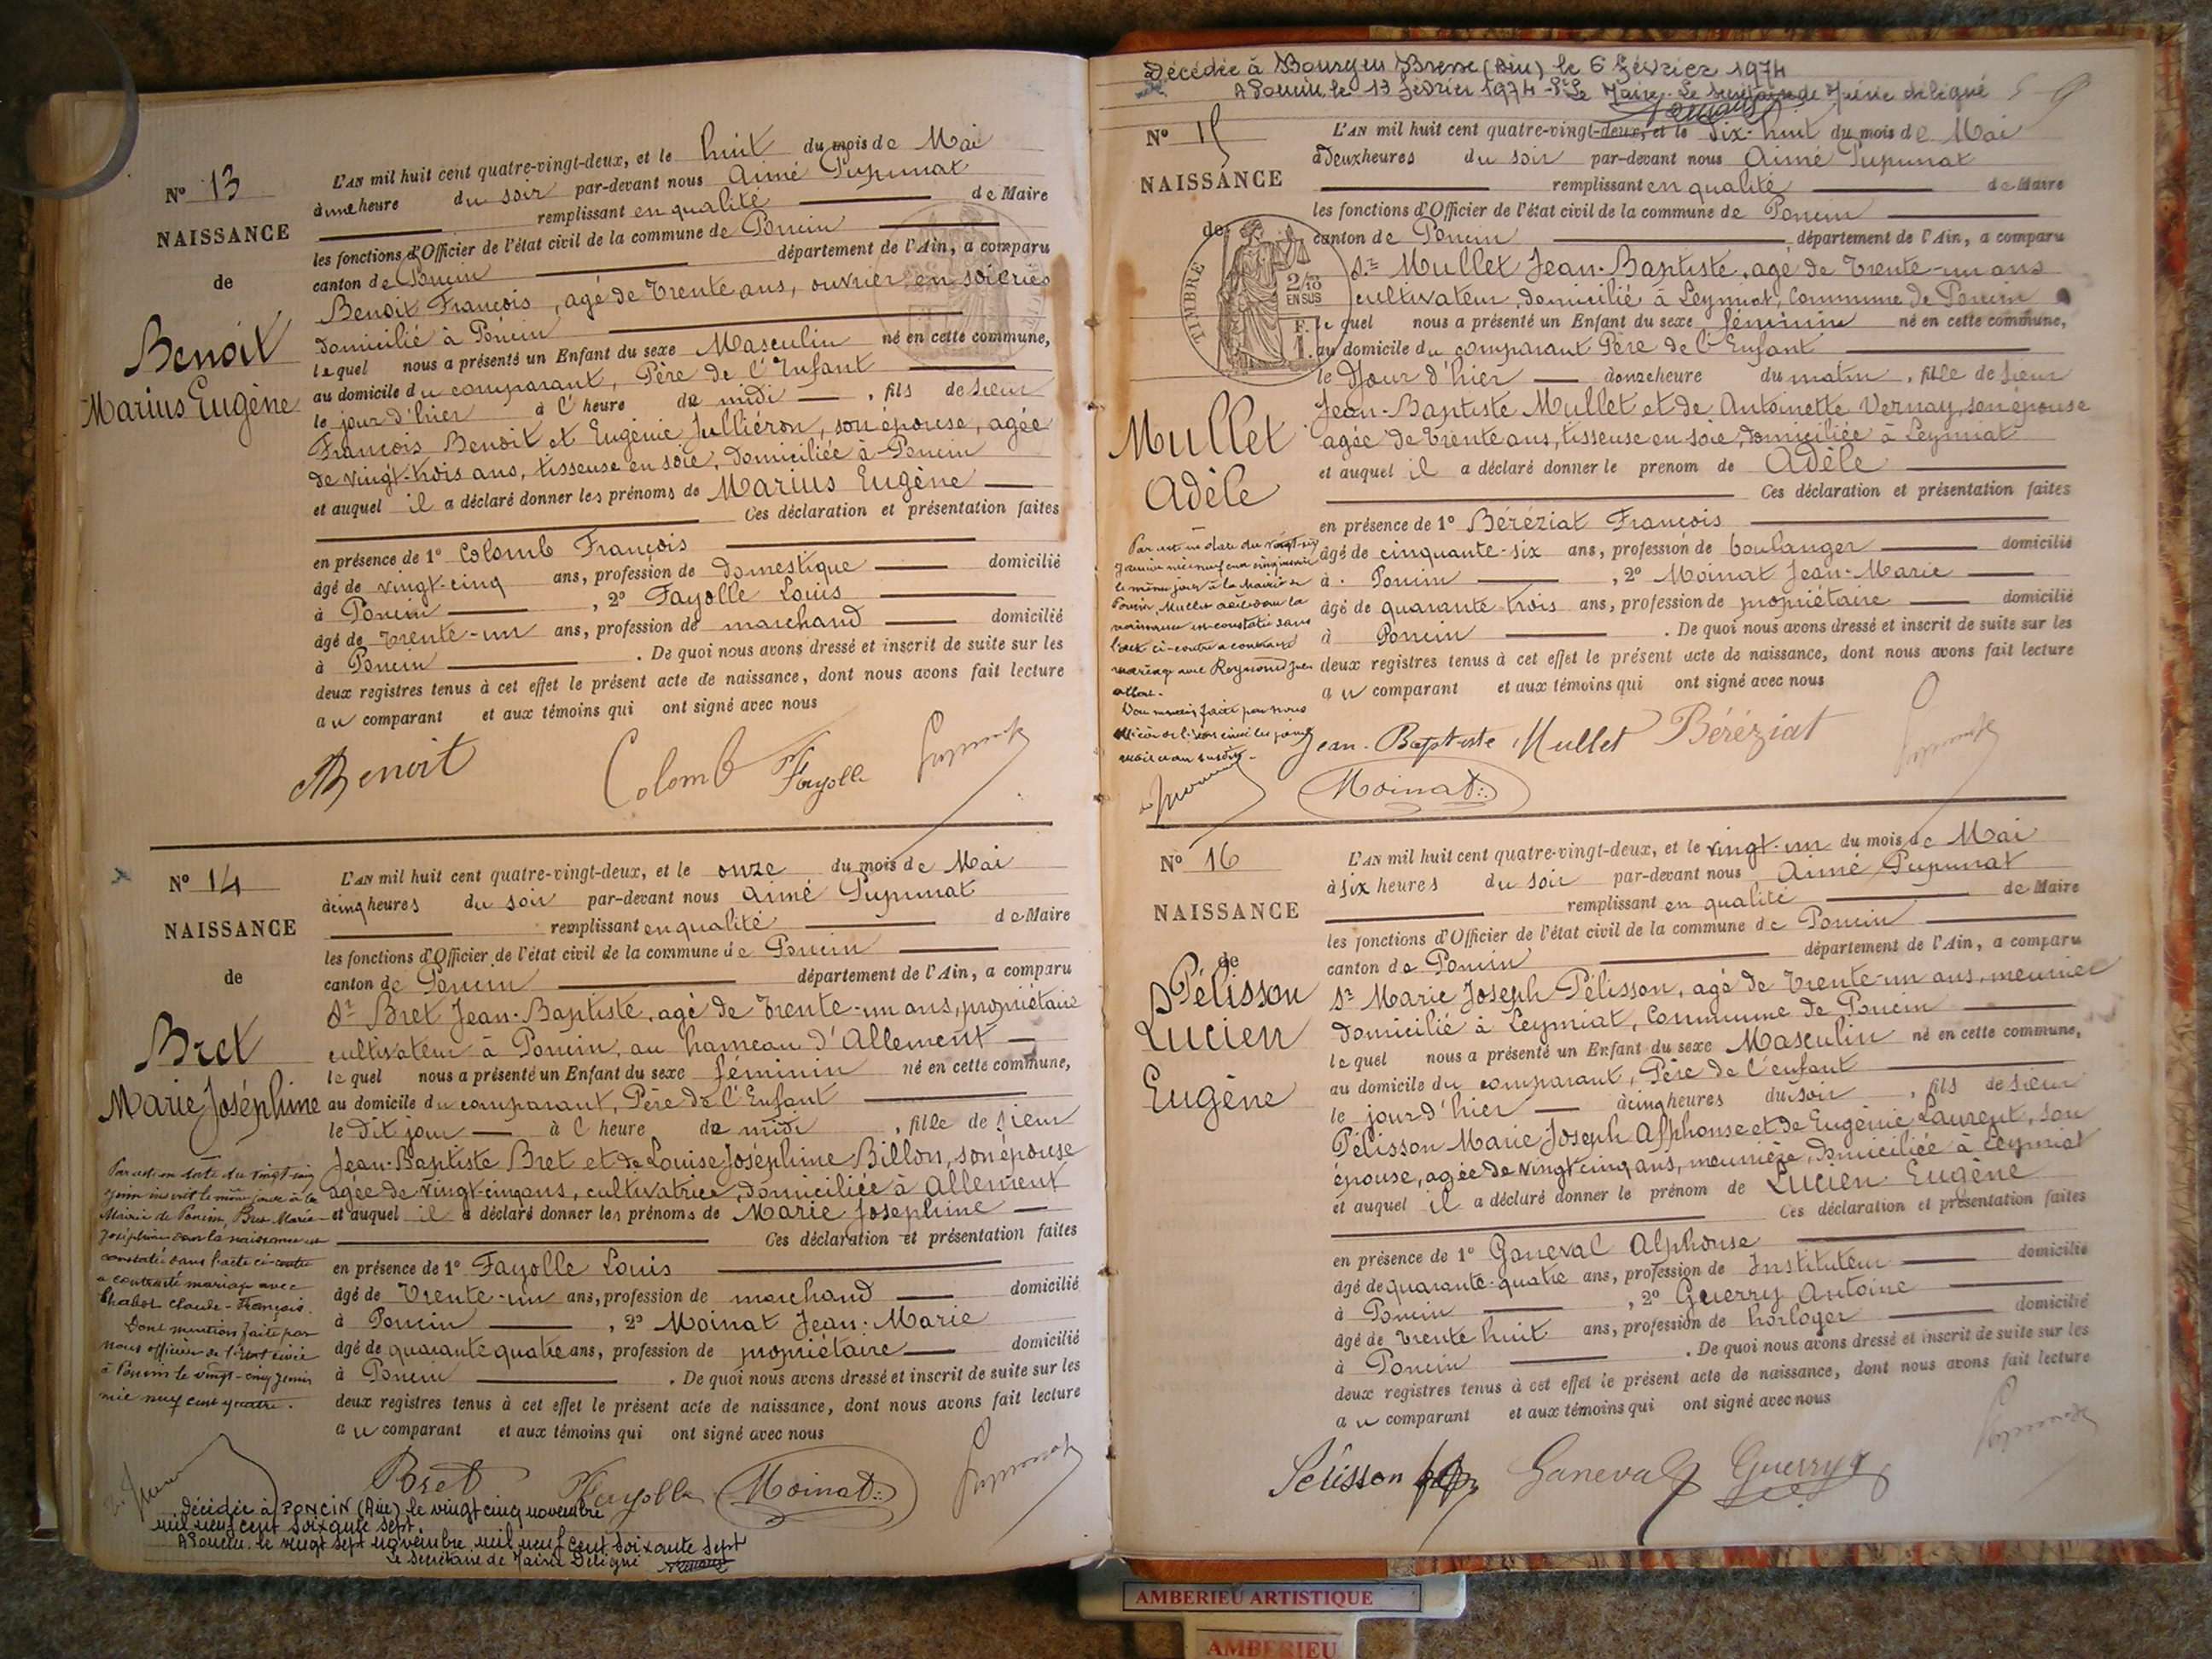 N° 13
NAISSANCE
de
Benoit
Marius Eugène
L'AN mil huit cent quatre-vingt-deux, et le huit du mois de Mai
à une heure du soir par-devant nous Aimé Pupunat
remplissant en qualité de Maire
les fonctions d'Officier de l'état civil de la commune de Poncin
canton de Poncin département de l'Ain, a comparu
Benoit François, agé de trente ans, ouvrier en soieries
domicilié à Poncin
lequel nous a présenté un Enfant du sexe Masculin né en cette commune,
au domicile du comparant, Père de l'Enfant
le jour d'hier à l' heure de midi, fils de sieur
François Benoit et Eugénie Julliéron, son épouse, agée
de vingt-trois ans, tisseuse en soie, domiciliée à Poncin
et auquel il a déclaré donner les prénoms de Marius Eugène
Ces déclaration et présentation faites
en présence de 1° Colomb François
âgé de vingt-cinq ans, profession de domestique domicilié
à Poncin, 2° Fayolle Louis
âgé de trente-un ans, profession de marchand domicilié
à Poncin. De quoi nous avons dressé et inscrit de suite sur les
deux registres tenus à cet effet le présent acte de naissance, dont nous avons fait lecture
au comparant et aux témoins qui ont signé avec nous
Benoit Colomb Fayolle Pupunat
N° 14
NAISSANCE
de
Bret
Marie Joséphine
Par acte en date du vingt-cinq
juin inscrit le même jour à la
Mairie de Poncin, Bret Marie
Joséphine dont la naissance est
constatée dans l'acte ci-contre
a contracté mariage avec
Chabot Claude-François.
Dont mention faite par
nous officier de l'état civil
à Poncin le vingt-cinq juin
mil neuf cent quatre.
L'AN mil huit cent quatre-vingt-deux, et le onze du mois de Mai
à cinq heures du soir par-devant nous Aimé Pupunat
remplissant en qualité de Maire
les fonctions d'Officier de l'état civil de la commune de Poncin
canton de Poncin département de l'Ain, a comparu
Sr Bret Jean-Baptiste, agé de trente-un ans, propriétaire
cultivateur à Poncin, au hameau d'Allement
lequel nous a présenté un Enfant du sexe féminin né en cette commune,
au domicile du comparant, Père de l'Enfant
le dit jour à l' heure de midi, fille de sieur
Jean-Baptiste Bret et de Louise Joséphine Billon, son épouse
agée de vingt-cinq ans, cultivatrice, domiciliée à Allement
et auquel il a déclaré donner les prénoms de Marie Joséphine
Ces déclaration et présentation faites
en présence de 1° Fayolle Louis
âgé de trente-un ans, profession de marchand domicilié
à Poncin, 2° Moinat Jean-Marie
âgé de quarante quatre ans, profession de propriétaire domicilié
à Poncin. De quoi nous avons dressé et inscrit de suite sur les
deux registres tenus à cet effet le présent acte de naissance, dont nous avons fait lecture
au comparant et aux témoins qui ont signé avec nous
Bret Fayolle Moinat Pupunat
Décédée à PONCIN (Ain) le vingt cinq novembre
mil neuf cent soixante sept.
A Poncin, le vingt sept novembre mil neuf cent soixante sept
Le secrétaire de Mairie Délégué
Décédée à Bourg en Bresse (Ain) le 6 février 1974
A Poncin, le 13 février 1974
N° 15
NAISSANCE
de
TIMBRE
2/10
EN SUS
F.
Mullet
Adèle
L'AN mil huit cent quatre-vingt-deux, et le dix-huit du mois de Mai
à deux heures du soir par-devant nous Aimé Pupunat
remplissant en qualité de Maire
les fonctions d'Officier de l'état civil de la commune de Poncin
canton de Poncin département de l'Ain, a comparu
Sr Mullet Jean-Baptiste, agé de trente-un ans
cultivateur, domicilié à Leymiat, Commune de Poncin
lequel nous a présenté un Enfant du sexe féminin né en cette commune,
au domicile du comparant Père de l'Enfant
le Jour d'hier à onze heure du matin, fille de sieur
Jean-Baptiste Mullet et de Antoinette Vernay, son épouse
agée de trente ans, tisseuse en soie, domiciliée à Leymiat
et auquel il a déclaré donner le prenom de Adèle
Ces déclaration et présentation faites
en présence de 1° Béréziat François
âgé de cinquante-six ans, profession de boulanger domicilié
à Poncin, 2° Moinat Jean-Marie
âgé de quarante trois ans, profession de propriétaire domicilié
à Poncin. De quoi nous avons dressé et inscrit de suite sur les
deux registres tenus à cet effet le présent acte de naissance, dont nous avons fait lecture
au comparant et aux témoins qui ont signé avec nous
Jean-Baptiste Mullet Béréziat Pupunat
Moinat
N° 16
NAISSANCE
de
Pélisson
Lucien
Eugène
L'AN mil huit cent quatre-vingt-deux, et le vingt-un du mois de Mai
à six heures du soir par-devant nous Aimé Pupunat
remplissant en qualité de Maire
les fonctions d'Officier de l'état civil de la commune de Poncin
canton de Poncin département de l'Ain, a comparu
Sr Marie Joseph Pélisson, agé de trente-un ans, meunier
domicilié à Leymiat, Commune de Poncin
lequel nous a présenté un Enfant du sexe Masculin né en cette commune,
au domicile du comparant, Père de l'enfant
le jour d'hier à cinq heures du soir, fils de sieur
Pélisson Marie Joseph Alphonse et de Eugénie Laurent, son
épouse, agée de vingt cinq ans, meunière, domiciliée à Leymiat
et auquel il a déclaré donner le prénom de Lucien Eugène
Ces déclaration et présentation faites
en présence de 1° Ganeval Alphonse
âgé de quarante-quatre ans, profession de Instituteur domicilié
à Poncin, 2° Guerry Antoine
âgé de trente huit ans, profession de horloger domicilié
à Poncin. De quoi nous avons dressé et inscrit de suite sur les
deux registres tenus à cet effet le présent acte de naissance, dont nous avons fait lecture
au comparant et aux témoins qui ont signé avec nous
Pélisson Ganeval Guerry Pupunat
AMBERIEU ARTISTIQUE
AMBERIEU